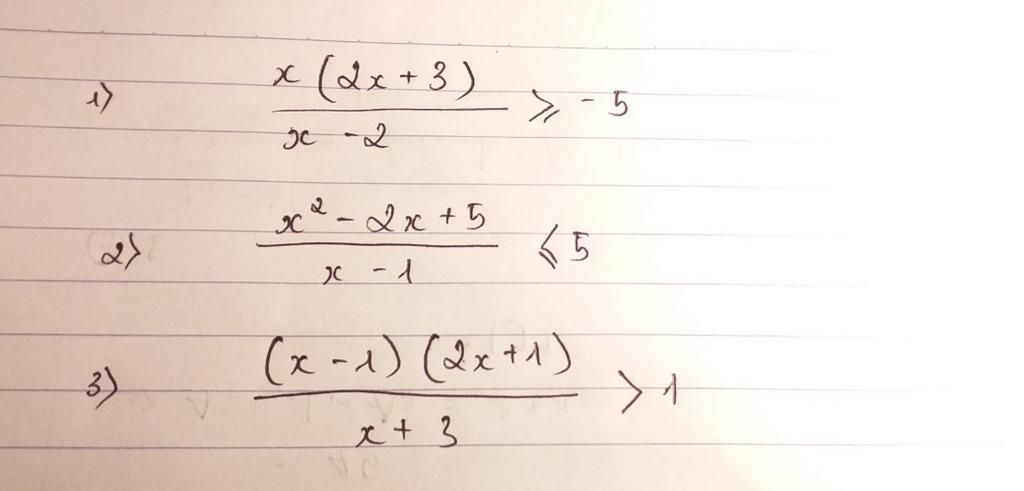 1) x(2x+3)/(x-2) ⩾ -5
2) (x²-2x+5)/(x-1) ⩽ 5
3) (x-1)(2x+1)/(x+3) > 1